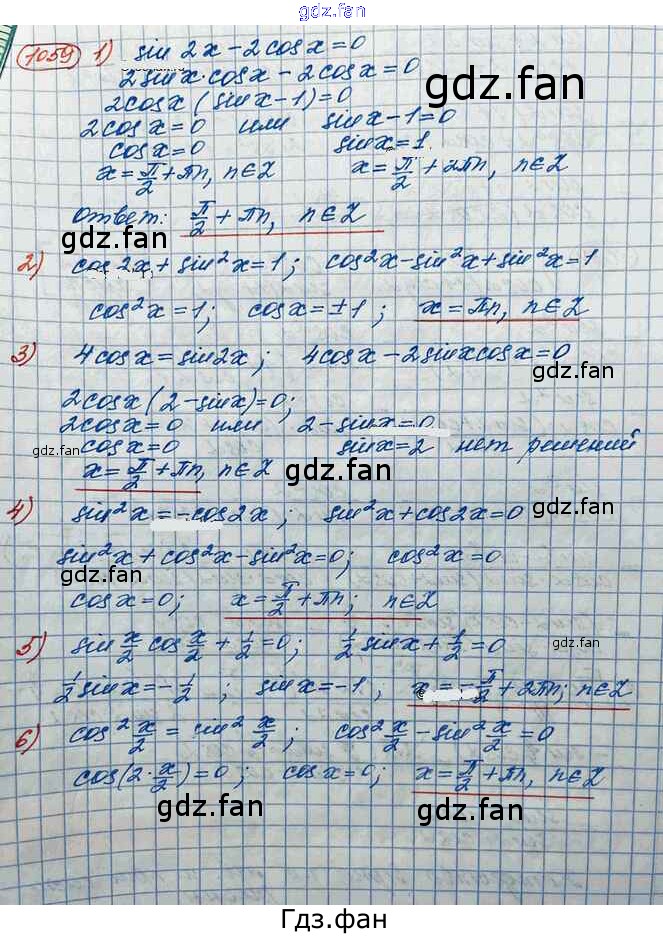 gdz.fan
1059 1) sin 2x - 2cosx = 0
2sinx·cosx - 2cosx = 0
gdz.fan
2cosx (sinx - 1) = 0
2cosx = 0 или sinx - 1 = 0
cosx = 0 sinx = 1
x = π/2 + πn, n∈Z x = π/2 + 2πn, n∈Z
Ответ: π/2 + πn, n∈Z
gdz.fan gdz.fan
2) cos2x + sin²x = 1; cos²x - sin²x + sin²x = 1
cos²x = 1; cosx = ±1; x = πn, n∈Z
3) 4cosx = sin2x; 4cosx - 2sinxcosx = 0
gdz.fan
2cosx (2 - sinx) = 0;
2cosx = 0 или 2 - sinx = 0
gdz.fan cosx = 0 sinx = 2 нет решений
x = π/2 + πn, n∈Z
gdz.fan
4) sin²x = -cos2x; sin²x + cos2x = 0
gdz.fan
sin²x + cos²x - sin²x = 0; cos²x = 0
gdz.fan
cosx = 0; x = π/2 + πn; n∈Z
5) sin x/2 cos x/2 + 1/2 = 0; 1/2 sinx + 1/2 = 0
gdz.fan
1/2 sinx = -1/2; sinx = -1, x = -π/2 + 2πn; n∈Z
6) cos² x/2 = sin² x/2; cos² x/2 - sin² x/2 = 0
gdz.fan
cos(2·x/2) = 0; cosx = 0; x = π/2 + πn, n∈Z
gdz.fan
gdz.fan
Гдз.фан